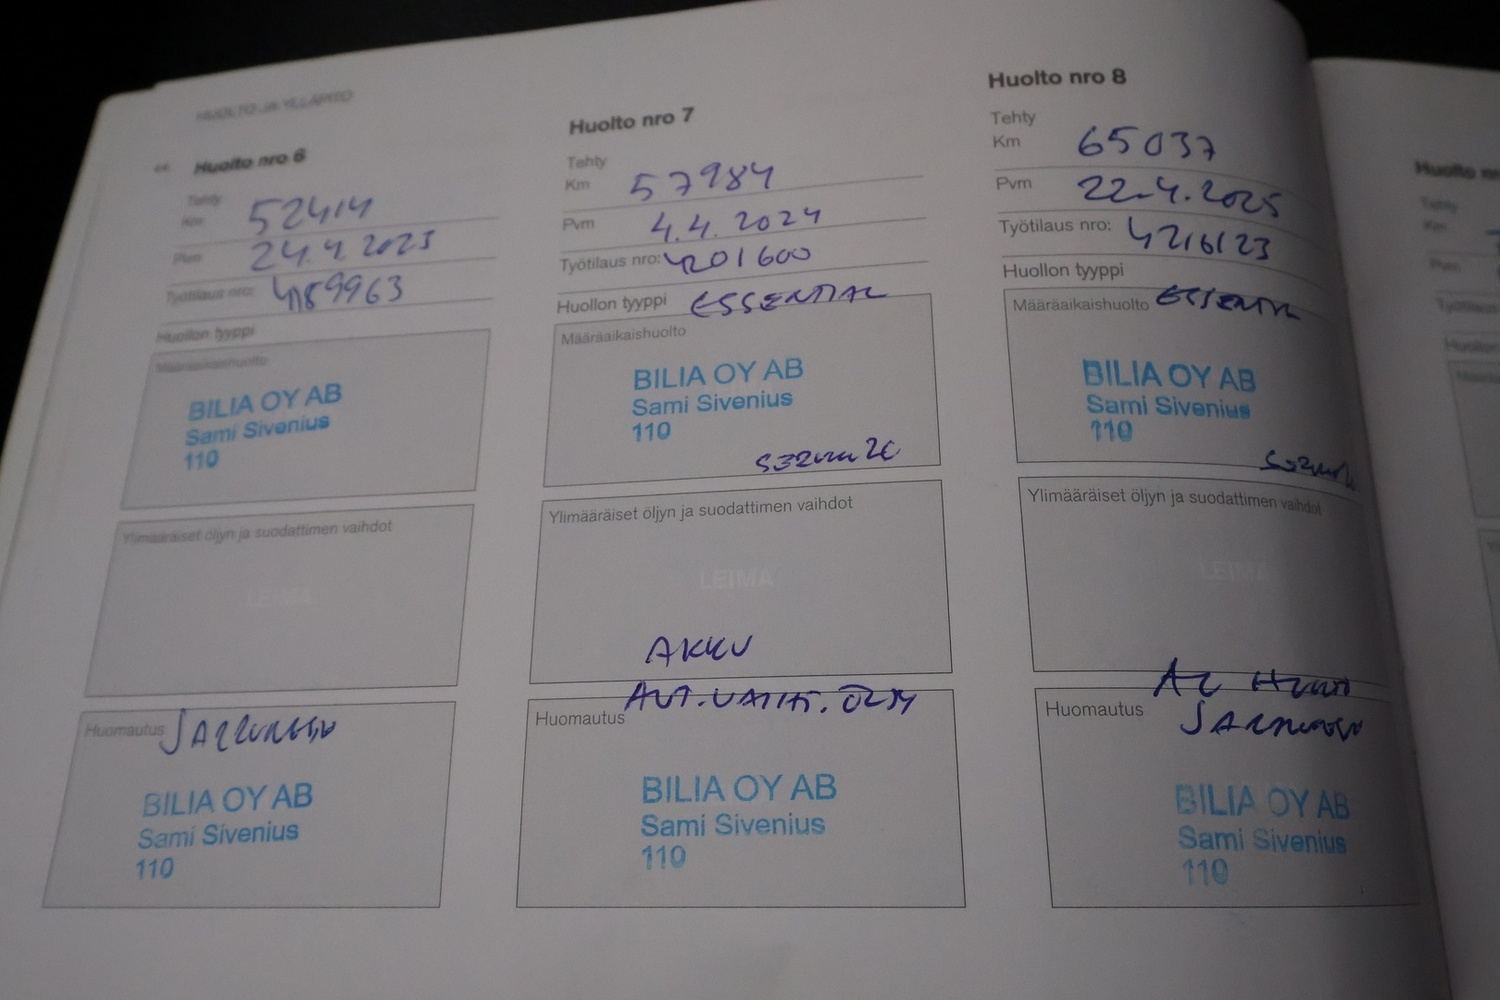 HUOLTO JA YLLÄPITO
Huolto nro 6
Tehty
Km 52414
Pvm 24.4.2023
Työtilaus nro: 4189963
Huollon tyyppi
Määräaikaishuolto
BILIA OY AB
Sami Sivenius
110
Ylimääräiset öljyn ja suodattimen vaihdot
LEIMA
Huomautus
BILIA OY AB
Sami Sivenius
110
Huolto nro 7
Tehty
Km 57984
Pvm 4.4.2024
Työtilaus nro: 4201600
Huollon tyyppi ESSENTIAL
Määräaikaishuolto
BILIA OY AB
Sami Sivenius
110
Ylimääräiset öljyn ja suodattimen vaihdot
LEIMA
AKKU
AUT.VAIHT. ÖLJY
Huomautus
BILIA OY AB
Sami Sivenius
110
Huolto nro 8
Tehty
Km 65037
Pvm 22.4.2025
Työtilaus nro: 4216123
Huollon tyyppi
Määräaikaishuolto
BILIA OY AB
Sami Sivenius
110
Ylimääräiset öljyn ja suodattimen vaihdot
LEIMA
Huomautus
BILIA OY AB
Sami Sivenius
110